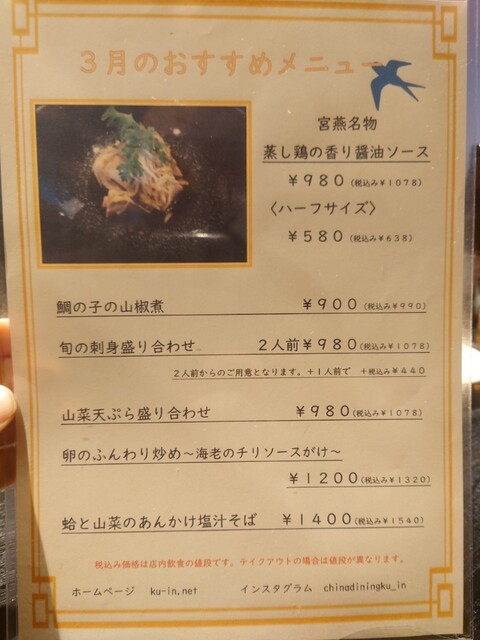 3月のおすすめメニュー
宮燕名物
蒸し鶏の香り醤油ソース
￥980(税込み￥1078)
〈ハーフサイズ〉
￥580(税込み￥638)
鯛の子の山椒煮 ￥900(税込み￥990)
旬の刺身盛り合わせ 2人前￥980(税込み￥1078)
2人前からのご用意となります。+1人前で +税込み￥440
山菜天ぷら盛り合わせ ￥980(税込み￥1078)
卵のふんわり炒め～海老のチリソースがけ～
￥1200(税込み￥1320)
蛤と山菜のあんかけ塩汁そば ￥1400(税込み￥1540)
税込み価格は店内飲食の値段です。テイクアウトの場合は値段が異なります。
ホームページ ku-in.net インスタグラム chinadiningku_in